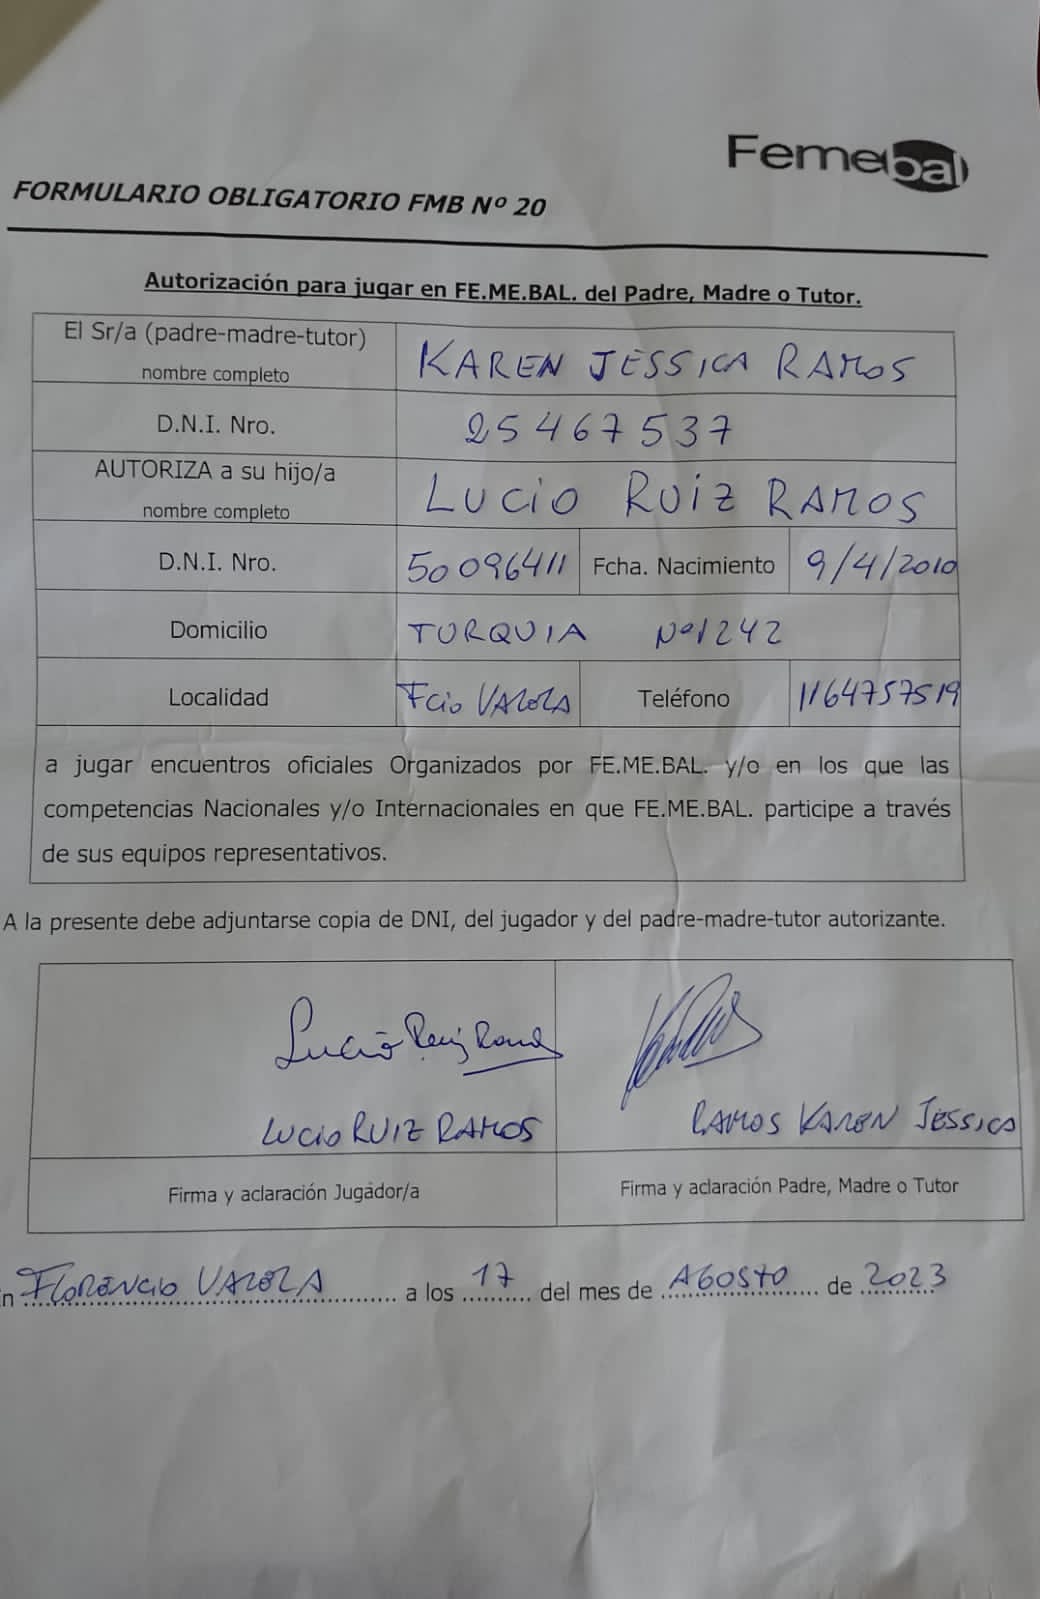 Femebal
FORMULARIO OBLIGATORIO FMB Nº 20
Autorización para jugar en FE.ME.BAL. del Padre, Madre o Tutor.
El Sr/a (padre-madre-tutor)
nombre completo
KAREN JESSICA RAMOS
D.N.I. Nro.
25467537
AUTORIZA a su hijo/a
nombre completo
LUCIO RUIZ RAMOS
D.N.I. Nro.
50096411
Fcha. Nacimiento
9/4/2010
Domicilio
TURQUIA Nº1242
Localidad
Fcio VARELA
Teléfono
1164757519
a jugar encuentros oficiales Organizados por FE.ME.BAL. y/o en los que las
competencias Nacionales y/o Internacionales en que FE.ME.BAL. participe a través
de sus equipos representativos.
A la presente debe adjuntarse copia de DNI, del jugador y del padre-madre-tutor autorizante.
Lucio Ruiz Ramos
LUCIO RUIZ RAMOS
RAMOS KAREN JESSICA
Firma y aclaración Jugador/a
Firma y aclaración Padre, Madre o Tutor
n FLORENCIO VARELA a los 17 del mes de AGOSTO de 2023